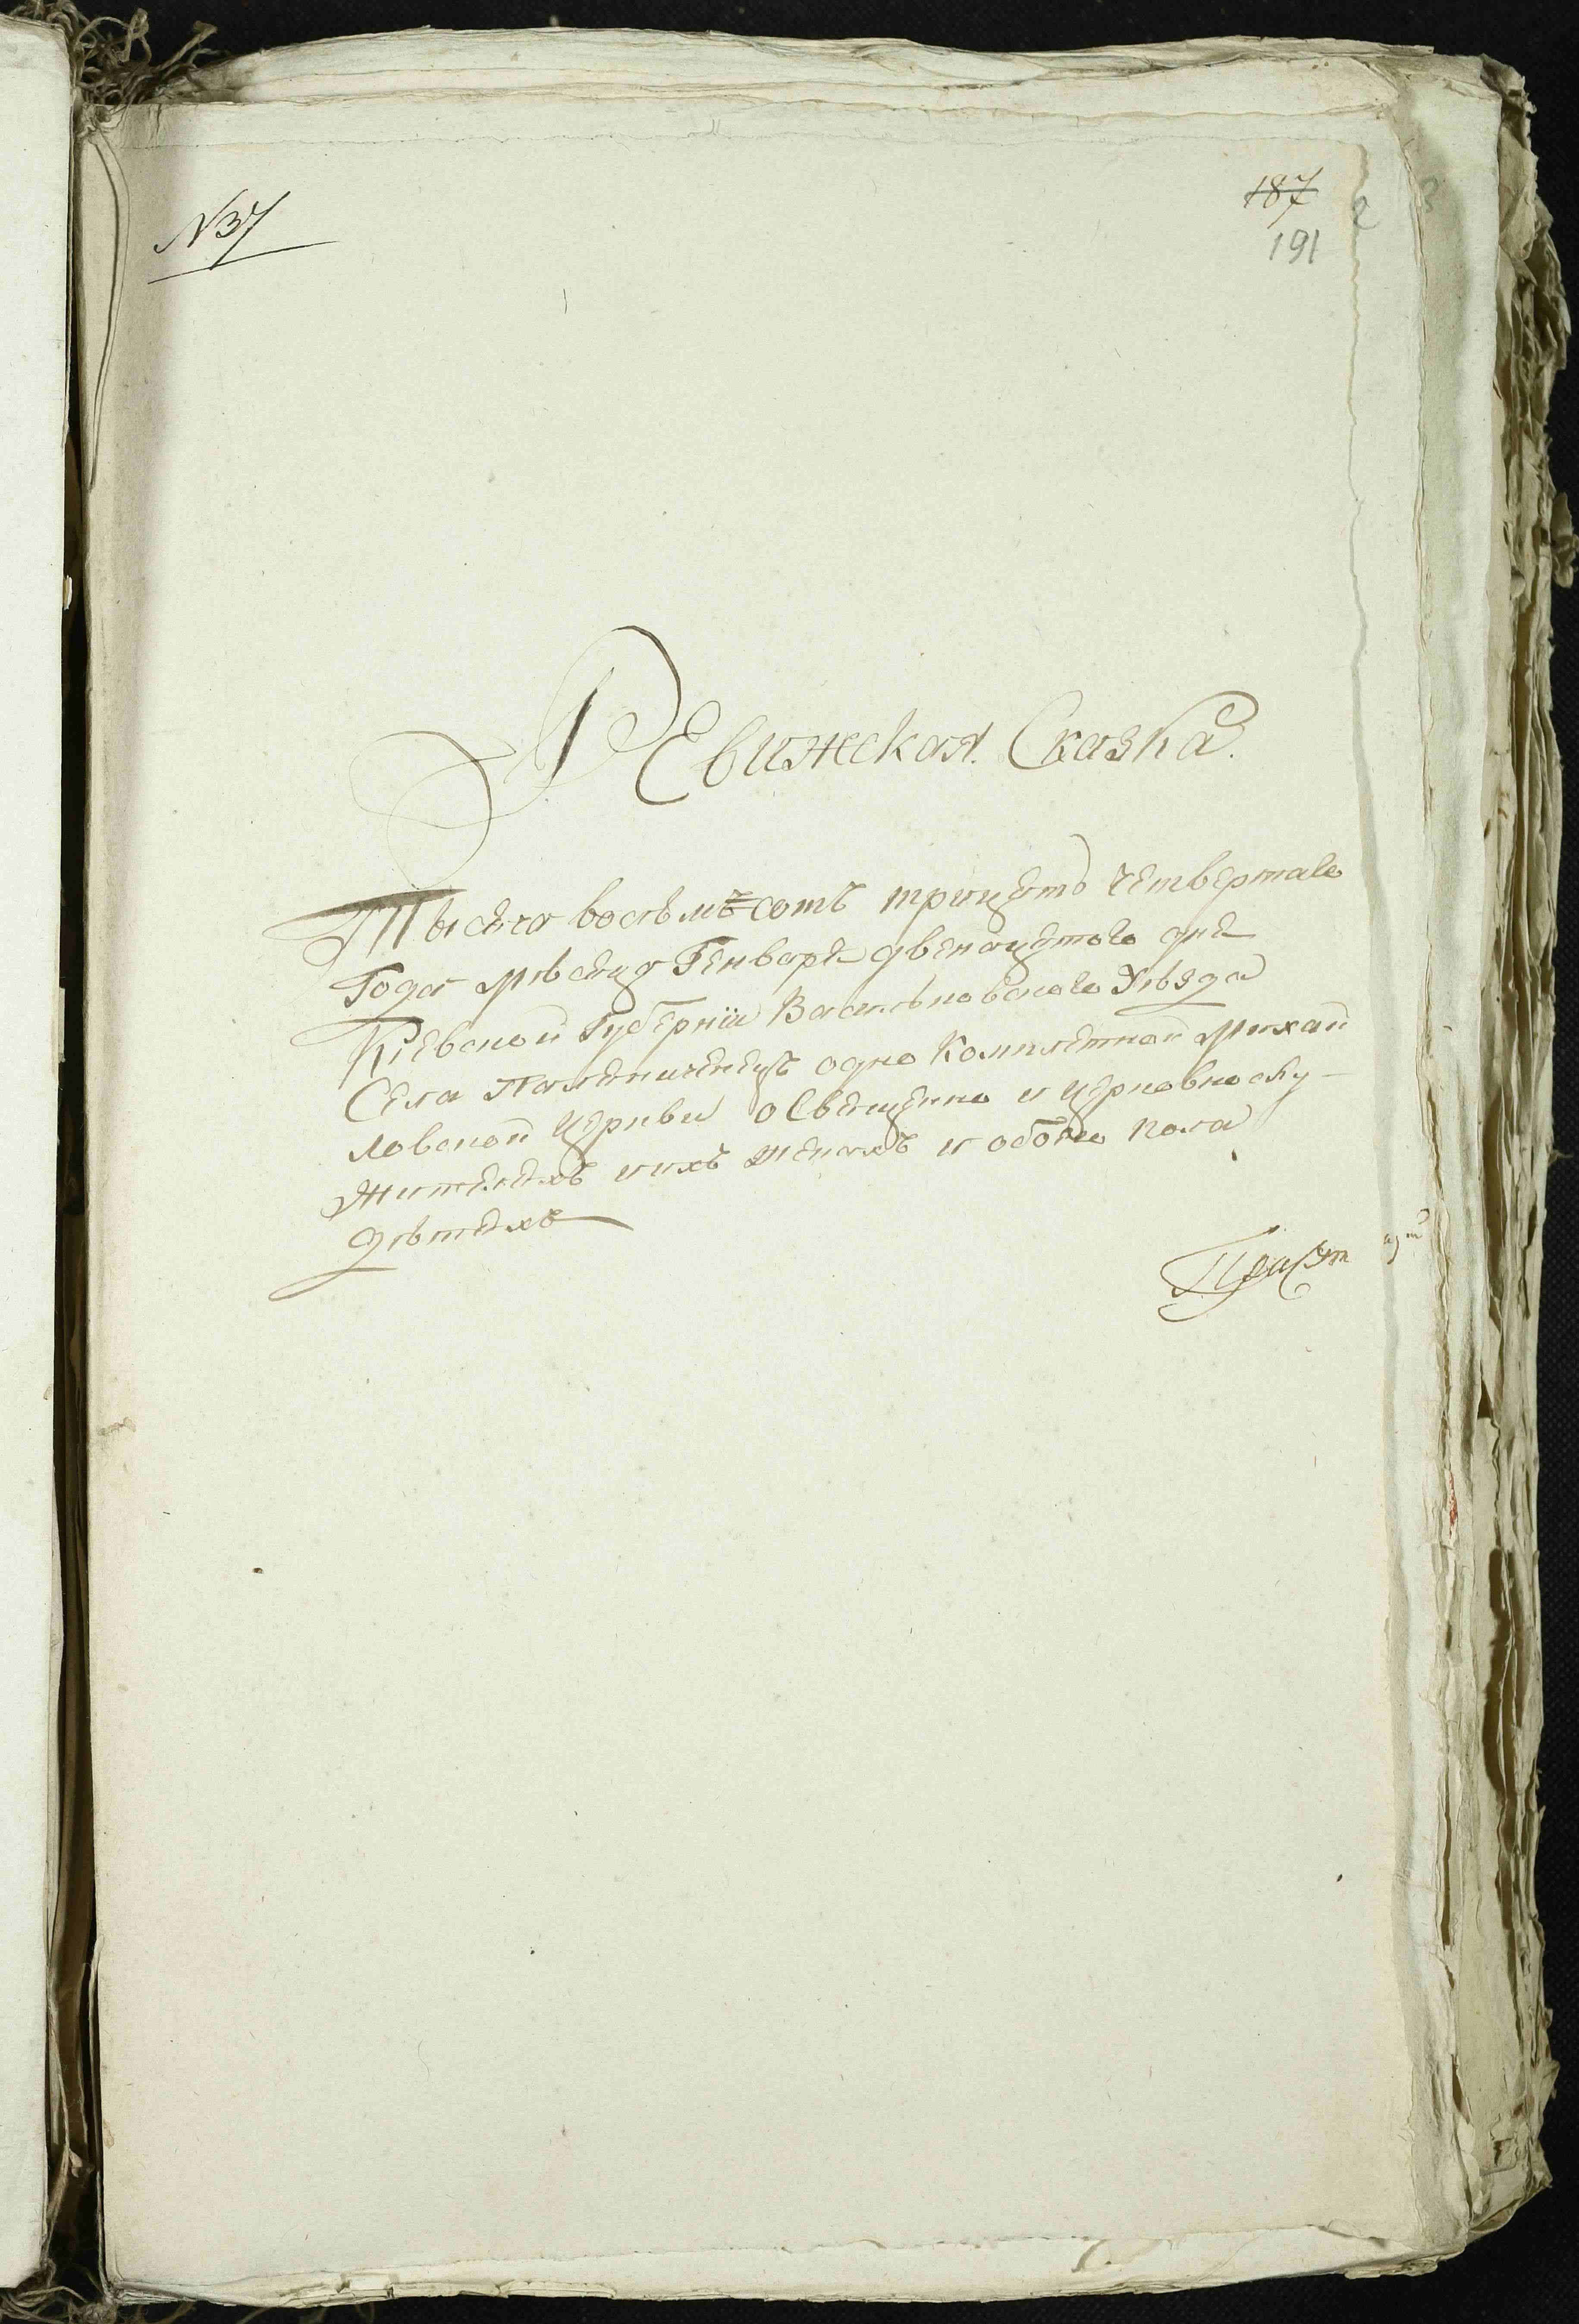 N37
187
191
Ревижская Сказка.
Тысяча восемъ=сотъ трицять четвертаго
Года мѣсяця Генваря двенацятого дня
Кіевской Губерніи Васильковского Уѣзда
Села Паляниченецъ одно Комплетной Михай
ловской церкви о Священно и церковнослу-
жителяхъ и ихъ женахъ и обоего пола
дѣтяхъ